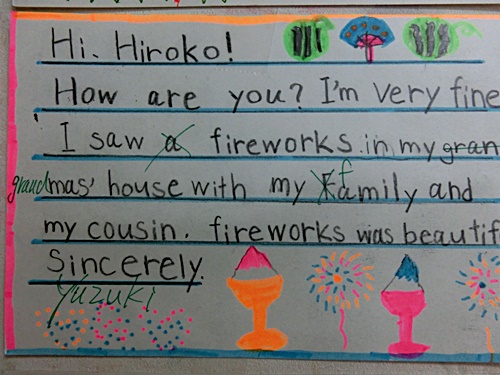 Hi. Hiroko!
How are you? I'm very fine
I saw a fireworks in my gran
grandmas' house with my family and
my cousin. fireworks was beautif
Sincerely.
Yuzuki